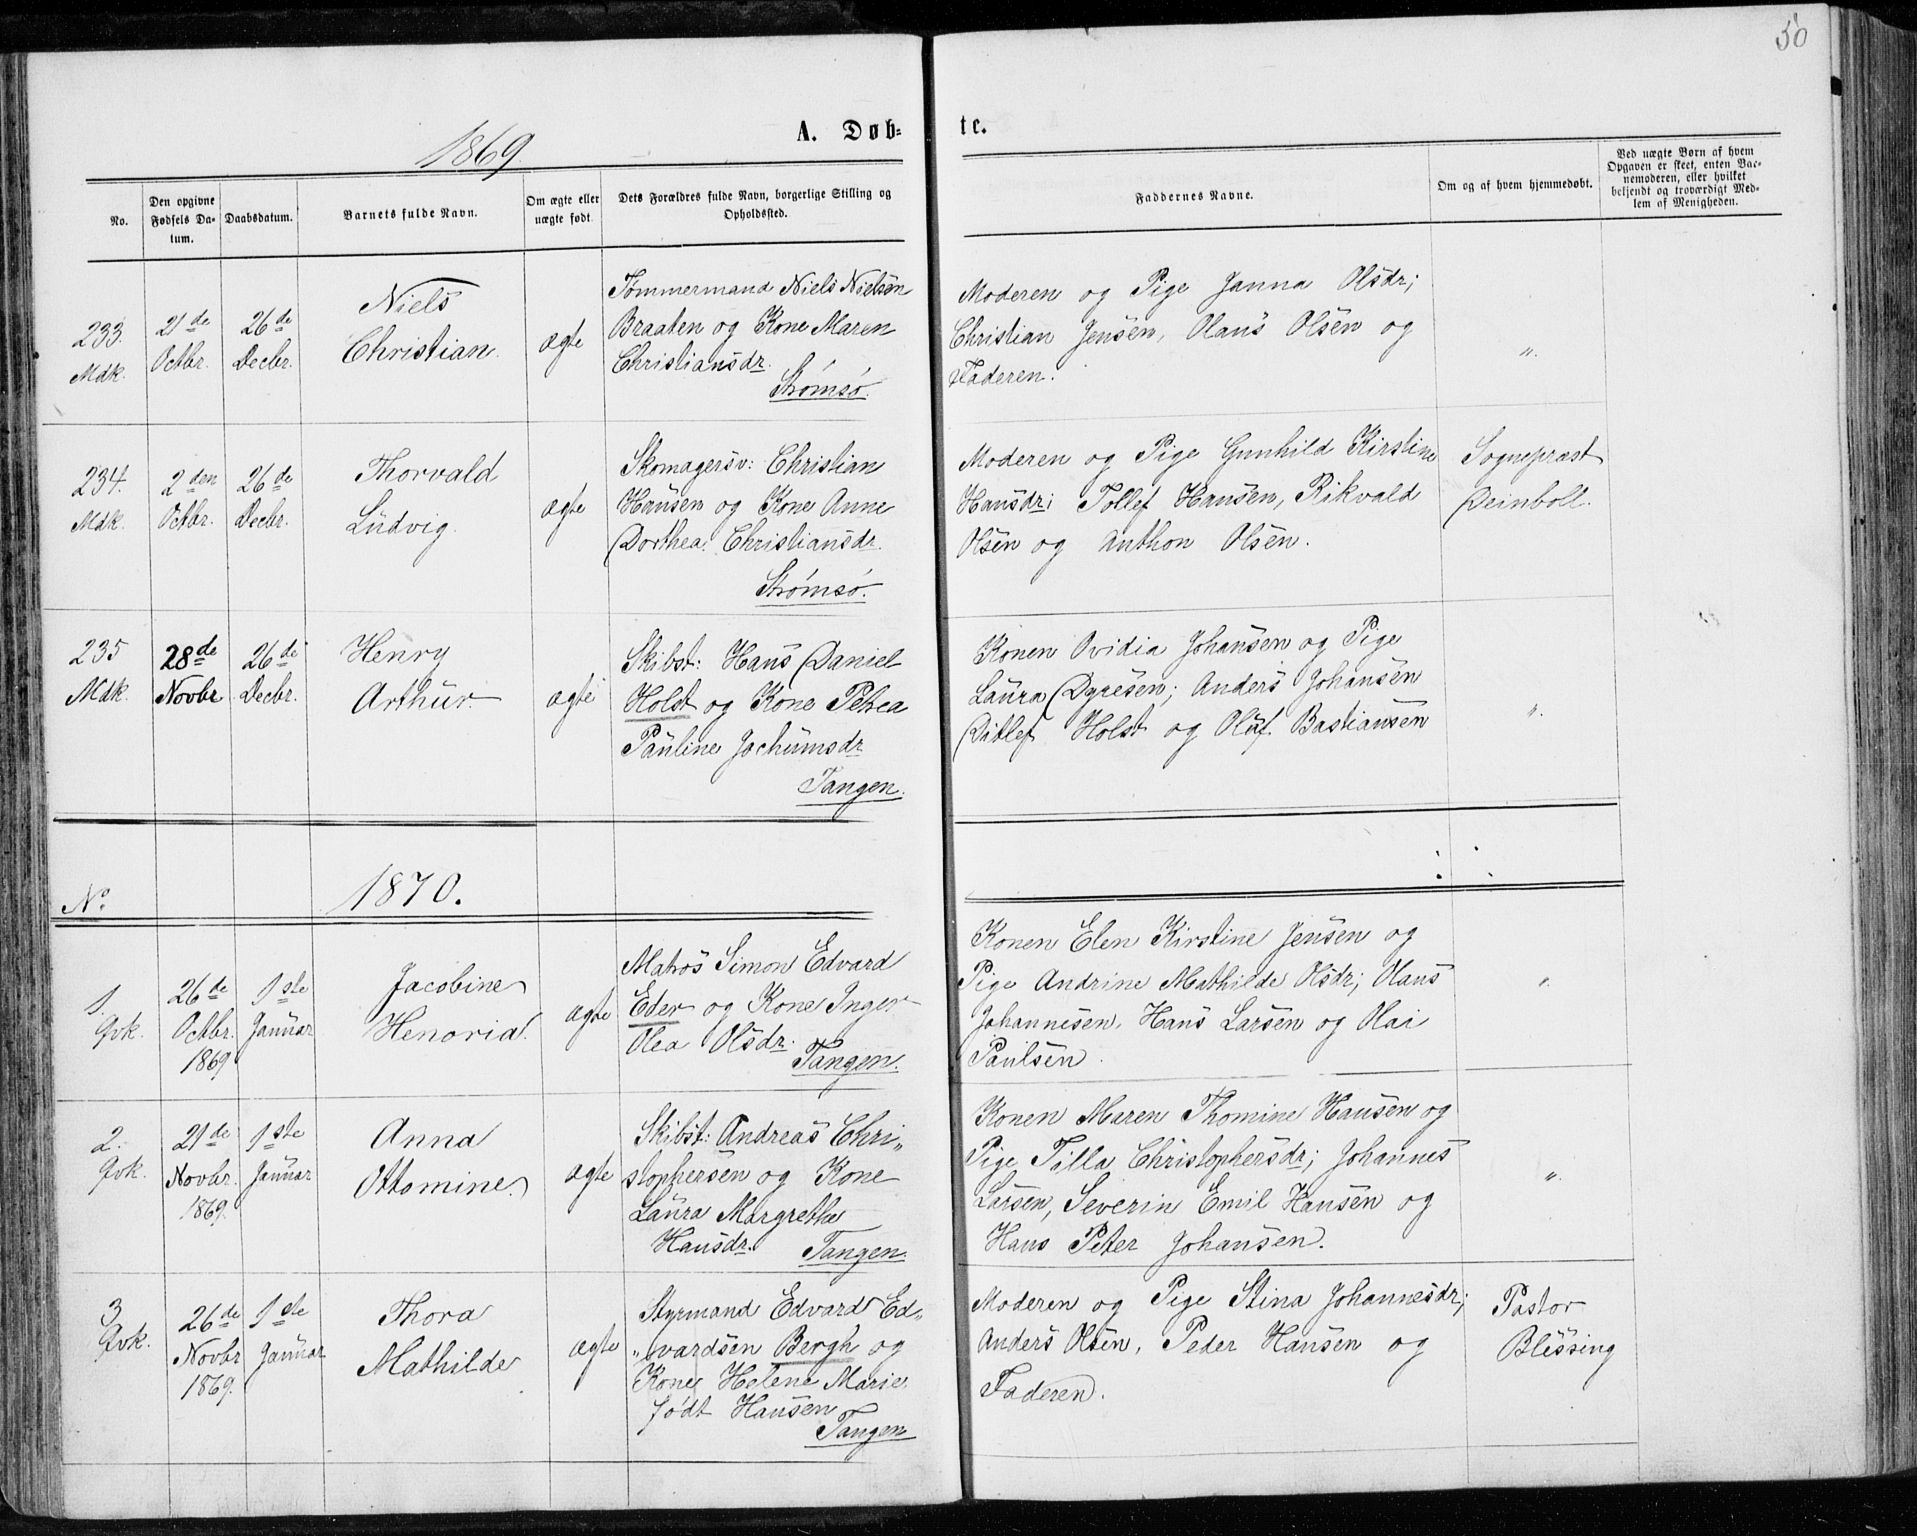 50
1869.
A. Døb-
te.
No.
Den opgivne
Fødsels Da-
tum.
Daabsdatum.
Barnets fulde Navn.
Om ægte eller
uægte født.
Dets Forældres fulde Navn, borgerlige Stilling og
Opholdssted.
Faddernes Navne.
Om og af hvem hjemmedøbt.
Ved uægte Børn af hvem
Opgaven er skeet, enten Bar-
nemoderen, eller hvilket
bekjendt og troværdigt Med-
lem af Menigheden.
233.
Mdk.
21de
Octbr.
26de
Decbr.
Niels
Christian.
ægte
Tømmermand Niels Nielsen
Braaten og Kone Maren
Christiansdr.
Strømsø.
Moderen og Pige Janna Olsdr;
Christian Jensen, Olaus Olsen og
Faderen.
"
234.
Mdk.
2den
Octbr.
26de
Decbr.
Thorvald
Ludvig.
ægte
Skomagersv: Christian
Hansen og Kone Anne
Dorthea Christiansdr.
Strømsø.
Moderen og Pige Gunhild Kirstine
Hansdr; Tollef Hansen, Rikvald
Olsen og Anthon Olsen.
Sognepræst
Deinboll.
235
Mdk.
28de
Novbr
26de
Decbr.
Henry
Arthur.
ægte
Skibst: Hans Daniel
Holst og Kone Petrea
Pauline Jochumsdr
Tangen.
Konen Ovidia Johansen og Pige
Laura Dyresen; Anders Johansen
Ditlef Holst og Olaf Bastiansen
"
No.
1870.
1.
Qvk.
26de
Octbr.
1869
1ste
Januar
Jacobine
Henoria.
ægte
Matros Simon Edvard
Eder og Kone Inger
Olea Olsdr.
Tangen.
Konen Elen Kirstine Jensen og
Pige Andrine Mathilde Olsdr; Olaus
Johannesen, Hans Larsen og Olai
Paulsen.
"
2.
Qvk.
21de
Novbr.
1869.
1ste
Januar
Anna
Ottomine.
ægte
Skibst: Andreas Chri„
stophersen og Kone
Laura Margrethe
Hansdr. Tangen.
Konen Maren Thomine Hansen og
Pige Tilla Christophersdr; Johannes
Larsen, Severin Emil Hansen og
Hans Peter Johansen.
"
3
Qvk.
26de
Novbr
1869.
1ste
Januar
Thora
Mathilde
ægte
Styrmand Edvard Ed„
„vardsen Bergh og
Kone Helene Marie
født Hansen
Tangen
Moderen og Pige Stina Johannesdr;
Anders Olsen, Peder Hansen og
Faderen.
Pastor
Blessing